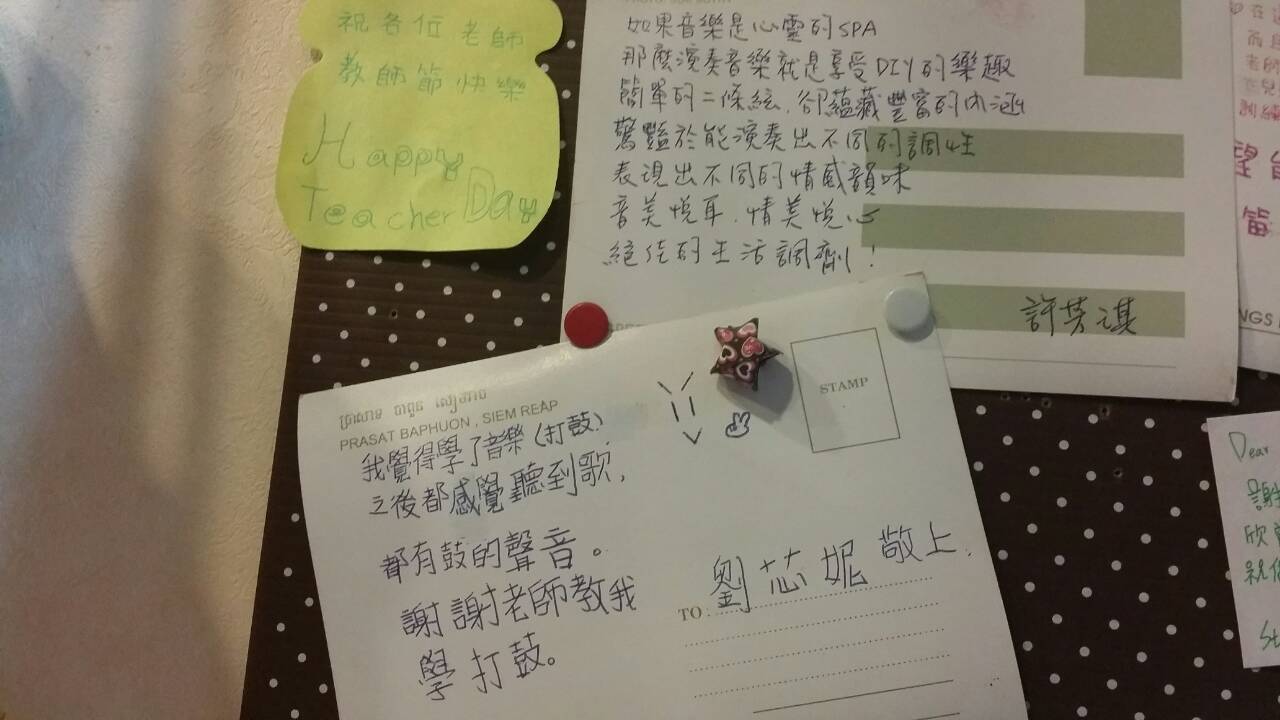 祝各位老師
教師節快樂
Happy
Teacher Day
如果音樂是心靈的SPA
那麼演奏音樂就是享受DIY的樂趣
簡單的二條絃,卻蘊藏豐富的內涵
驚豔於能演奏出不同的調性
表現出不同的情感韻味
音美悅耳,情美悅心
絕佳的生活調劑!
許芳淇
PRASAT BAPHUON , SIEM REAP
STAMP
我覺得學了音樂(打鼓)
之後都感覺聽到歌,
都有鼓的聲音。
謝謝老師教我
學打鼓。
劉芯妮 敬上.
TO:
Dear